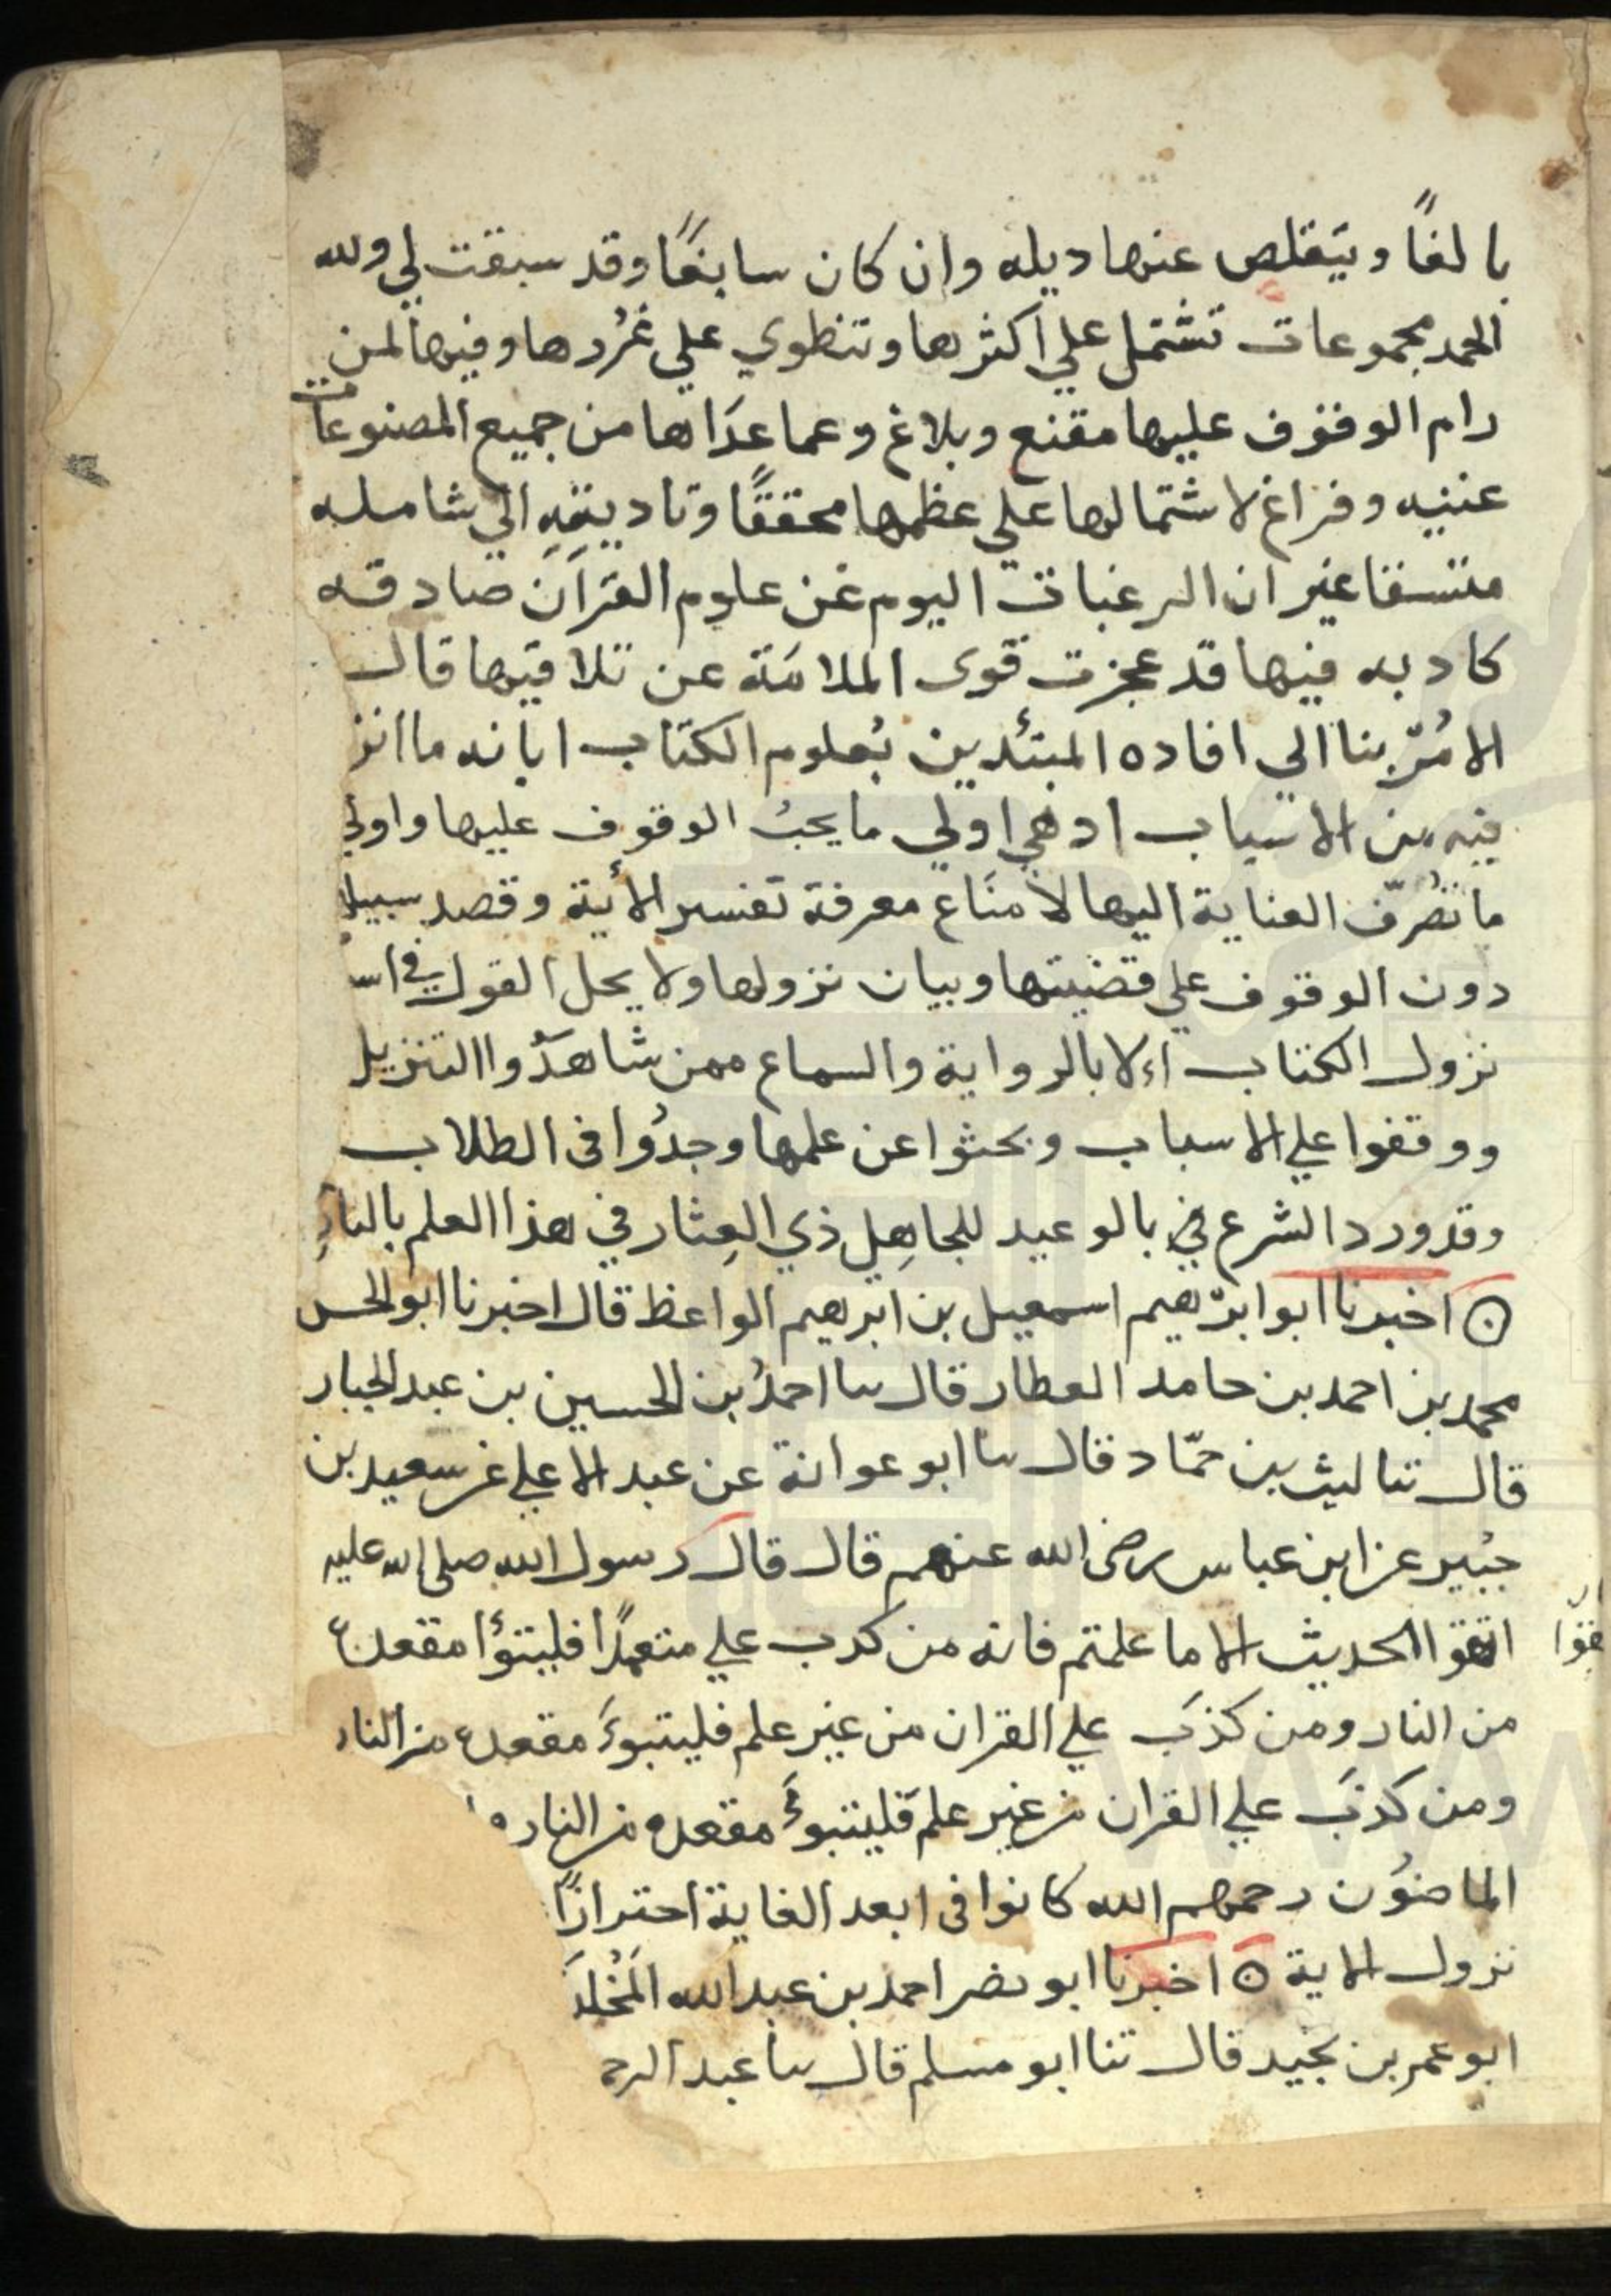 بالغًا ويتقلص عنها ديله وان كان سابغًا وقد سبقت لي ولله
الحمد مجموعات تشتمل علي اكثرها وتنطوي علي غُرُرها وفيها لمن
رام الوقوف عليها مقنع وبلاغ وعما عدَاها من جميع المصنوعات
غنيه وفراغ لاشتمالها علي عظمها محققًا وتاديته الي شامله
متسقا غير ان الرغبات اليوم عن علوم القرآن صادقه
كادبه فيها قد عجزت قوى الملامَة عن تلافيها فال
الامُرّ بنا الي افاده المبتئدين بُعلوم الكتاب ابانه ما انز
فيه من الاسباب اد هي اولي ما يحبُ الوقوف عليها واولي
ما تصُرّف العناية اليها لامتَاع معرفة تفسير الأية وقصد سبيلا
دون الوقوف علي قضيتها وبيان نزولها ولا يحل القول في اس
نزول الكتاب الا بالرواية والسماع ممن شاهدُوا التنزيل
ووقفوا علي الاسباب وبحثوا عن علمها وجدُوا فى الطلاب
وقد ورد الشرع في بالوعيد للجاهِل ذي العِثار في هذا العلم بالنارِ
⊙ اخبرنا ابو ابرّهيم اسمعيل بن ابرهيم الواعظ قال اخبرنا ابو الحس
محمد بن احمد بن حامد العطار قال سا احمدُ بن الحسين بن عبد الجبار
قال ثنا ليث بن حمّاد قال سا ابو عوانة عن عبد الاعلي عن سعيد بن
جبُير عن ابن عباس رضى الله عنهم قال قال رسول الله صلى الله عليه
اتقوا الحديث الا ما علمتم فانه من كدب علي متعمدًا فليتبؤا مقعده
من النار ومن كذبَ علي القران من غير علم فليتبوءَ مقعده من النار
ومن كذبَ علي القران من غير علم فليتبوءَ مقعده من النار
الماضوُن رحمهم الله كانوا فى ابعد الغاية احترازًا
نزول الاية ⊙ اخبرنا ابو نصر احمد بن عبد الله المَخُلدَ
ابو عمر بن نجيد قال ثنا ابو مسلم قال سا عبد الرحم